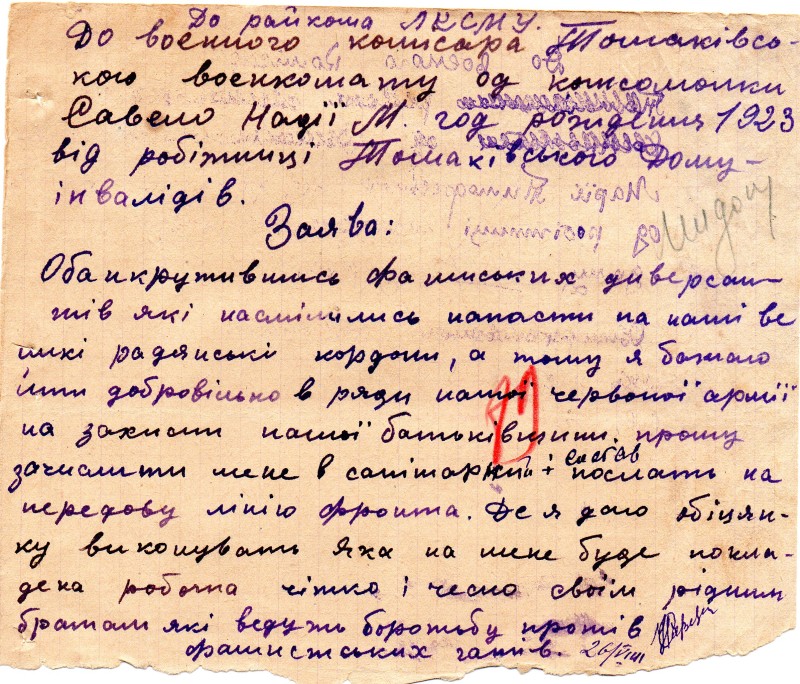 До райкома ЛКСМУ.
До военного комисара Томаківсь-
кого военкомату од комсомолки
Савело Надії М. год рождения 1923
від робітниці Томаківського Дому-
інвалідів.
Заява:
Обанкрутившись фашиських диверсан-
тів які насмілились напасти на наші ве
ликі радянські кордони, а тому я бажаю
йти добровільно в ряди нашої червоної армії
на захист нашої батьківщини. прошу
зачислити мене в санітарний состав і послать на
передову лінію фронта. Де я даю обіцян-
ку виконувать яка на мене буде покла-
дена робочна чітко і чесно своїм рідним
братам які ведуть боротьбу протів
фашистських гатів. 26/VIII